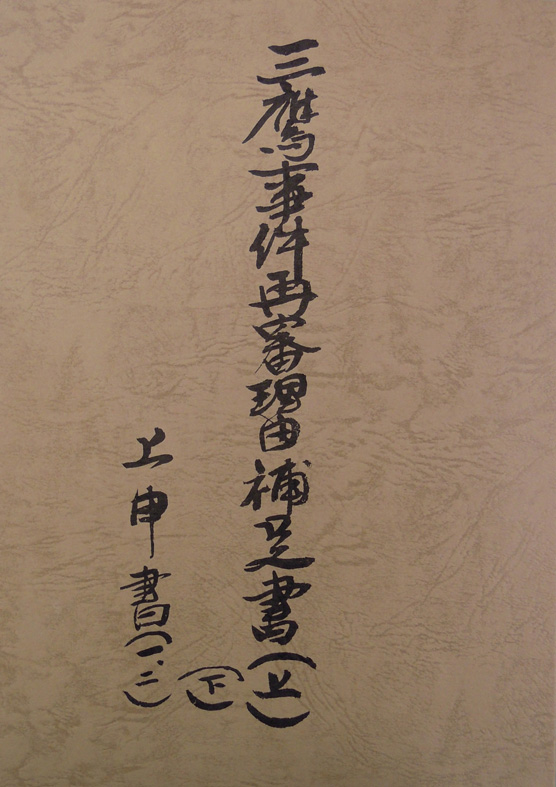 三鷹事件再審理由補足書(上)
(下)
上申書(一、二)